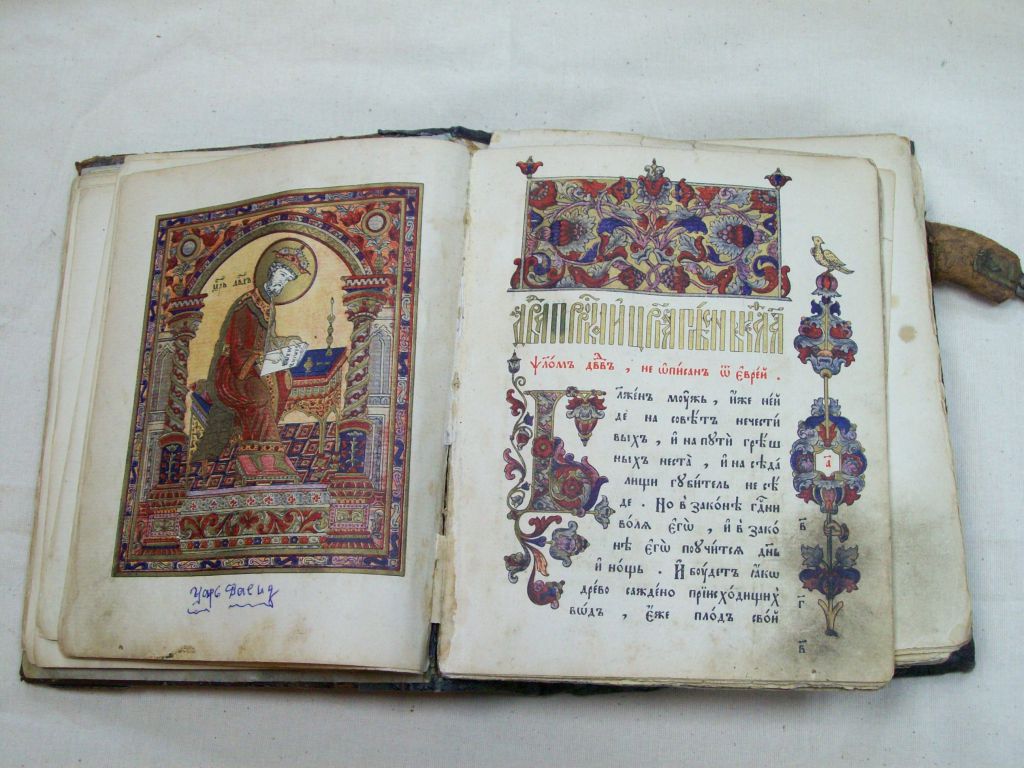 царь давид
ѱло́мъ дв҃въ , не ѡ҆пи́санъ ѿ є҆врє́й .
Блаже́нъ моу́жь , и҆́же не и҆́
де на совѣ́тъ нечести́
выхъ , и҆ на пꙋти̑ грѣ́ш
ныхъ не ста̀ , и҆ на сѣда́
лищи гꙋби́тель не сѣ́
де . Но в̾ зако́нѣ гдⷭ҇ни
во́лѧ є҆гѡ̀ , и҆ в̾ зако́
нѣ є҆гѡ̀ поꙋчи́тсѧ дн҃ь
и҆ но́щь . И҆ бꙋ́детъ ꙗ҆́кѡ
дре́во саждє́но при и҆схо́дищихъ
во́дъ , є҆́же пло́дъ сво́й
а҃
в҃
г҃